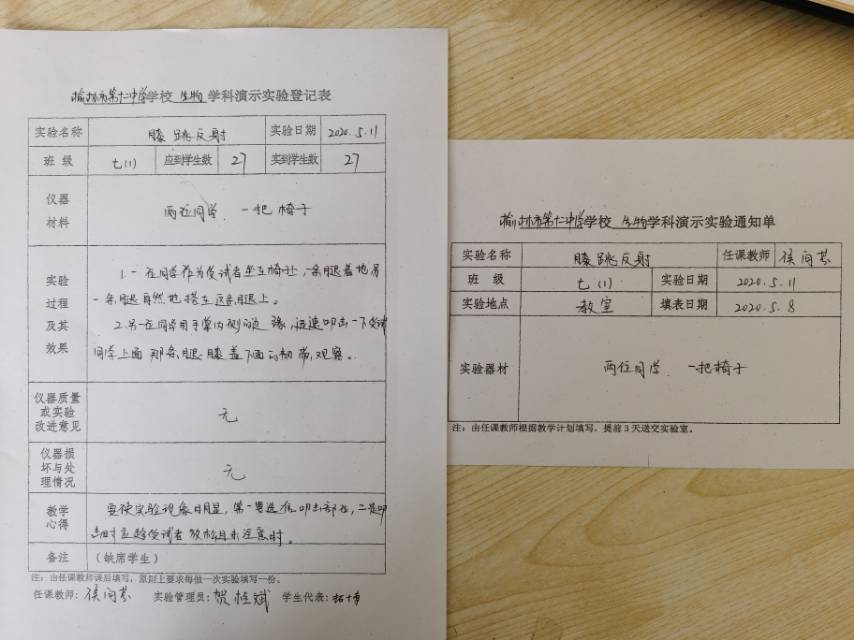 榆林市第十二中学学校 生物 学科演示实验登记表
实验名称 膝跳反射 实验日期 2020.5.11
班 级 七(1) 应到学生数 27 实到学生数 27
仪器
材料
两位同学、一把椅子
实验
过程
及其
效果
1.一位同学作为受试者坐在椅上,一条腿着地,另
一条腿自然地搭在这条腿上。
2.另一位同学用手掌内侧的边缘,迅速叩击一下受试
同学上面那条腿膝盖下面的韧带,观察。
仪器质量
或实验
改进意见
无
仪器损
坏与处
理情况
无
教学
心得
要使实验现象明显,第一要选准叩击部位,二是叩
击时应趁受试者放松且未注意时。
备注 (缺席学生)
注:由任课教师课后填写,原则上要求每做一次实验填写一份。
任课教师: 实验管理员:贺桂斌 学生代表:
榆林市第十二中学学校 生物学科演示实验通知单
实验名称 膝跳反射 任课教师
班 级 七(1) 实验日期 2020.5.11
实验地点 教室 填表日期 2020.5.8
实验器材 两位同学、一把椅子
注:由任课教师根据教学计划填写,提前3天送交实验室。